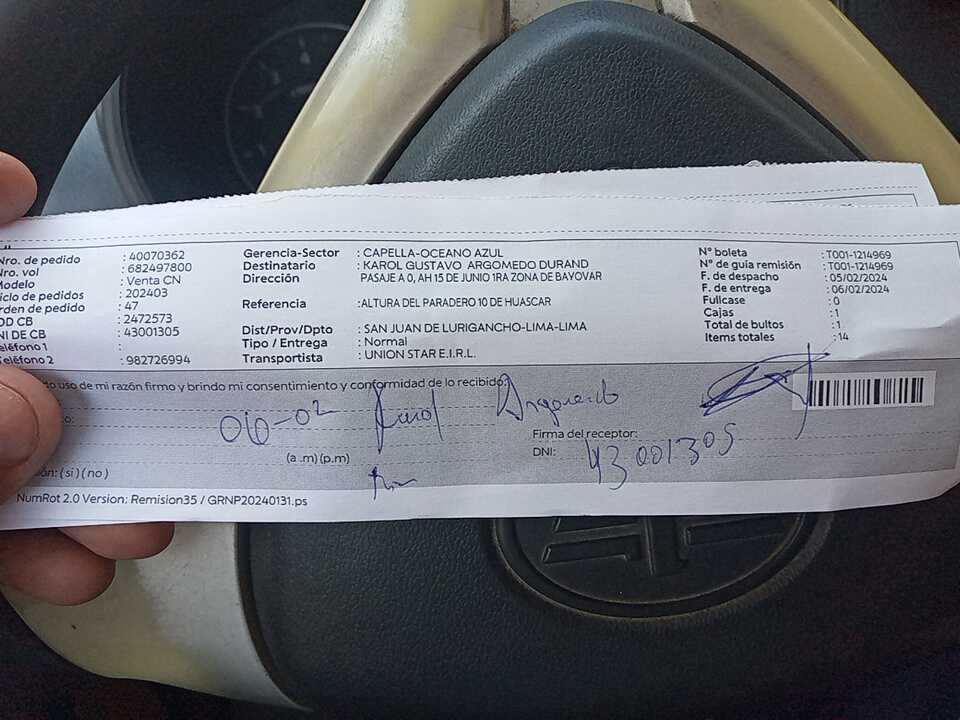 Nro. de pedido : 40070362
Nro. vol : 682497800
Modelo : Venta CN
iclo de pedidos : 202403
rden de pedido : 47
OD CB : 2472573
NI DE CB : 43001305
eléfono 1 :
eléfono 2 : 982726994
Gerencia-Sector : CAPELLA-OCEANO AZUL
Destinatario : KAROL GUSTAVO ARGOMEDO DURAND
Dirección PASAJE A 0, AH 15 DE JUNIO 1RA ZONA DE BAYOVAR
Referencia : ALTURA DEL PARADERO 10 DE HUASCAR
Dist/Prov/Dpto : SAN JUAN DE LURIGANCHO-LIMA-LIMA
Tipo / Entrega : Normal
Transportista : UNION STAR E.I.R.L.
N° boleta : T001-1214969
N° de guía remisión : T001-1214969
F. de despacho : 05/02/2024
F. de entrega : 06/02/2024
Fullcase : 0
Cajas : 1
Total de bultos : 1
Items totales : 14
o uso de mi razón firmo y brindo mi consentimiento y conformidad de lo recibido:
o: 06-02 Karol Argomedo
(a .m) (p.m)
Firma del receptor:
DNI: 43001305
ón: ( si ) ( no )
NumRot 2.0 Version: Remision35 / GRNP20240131.ps